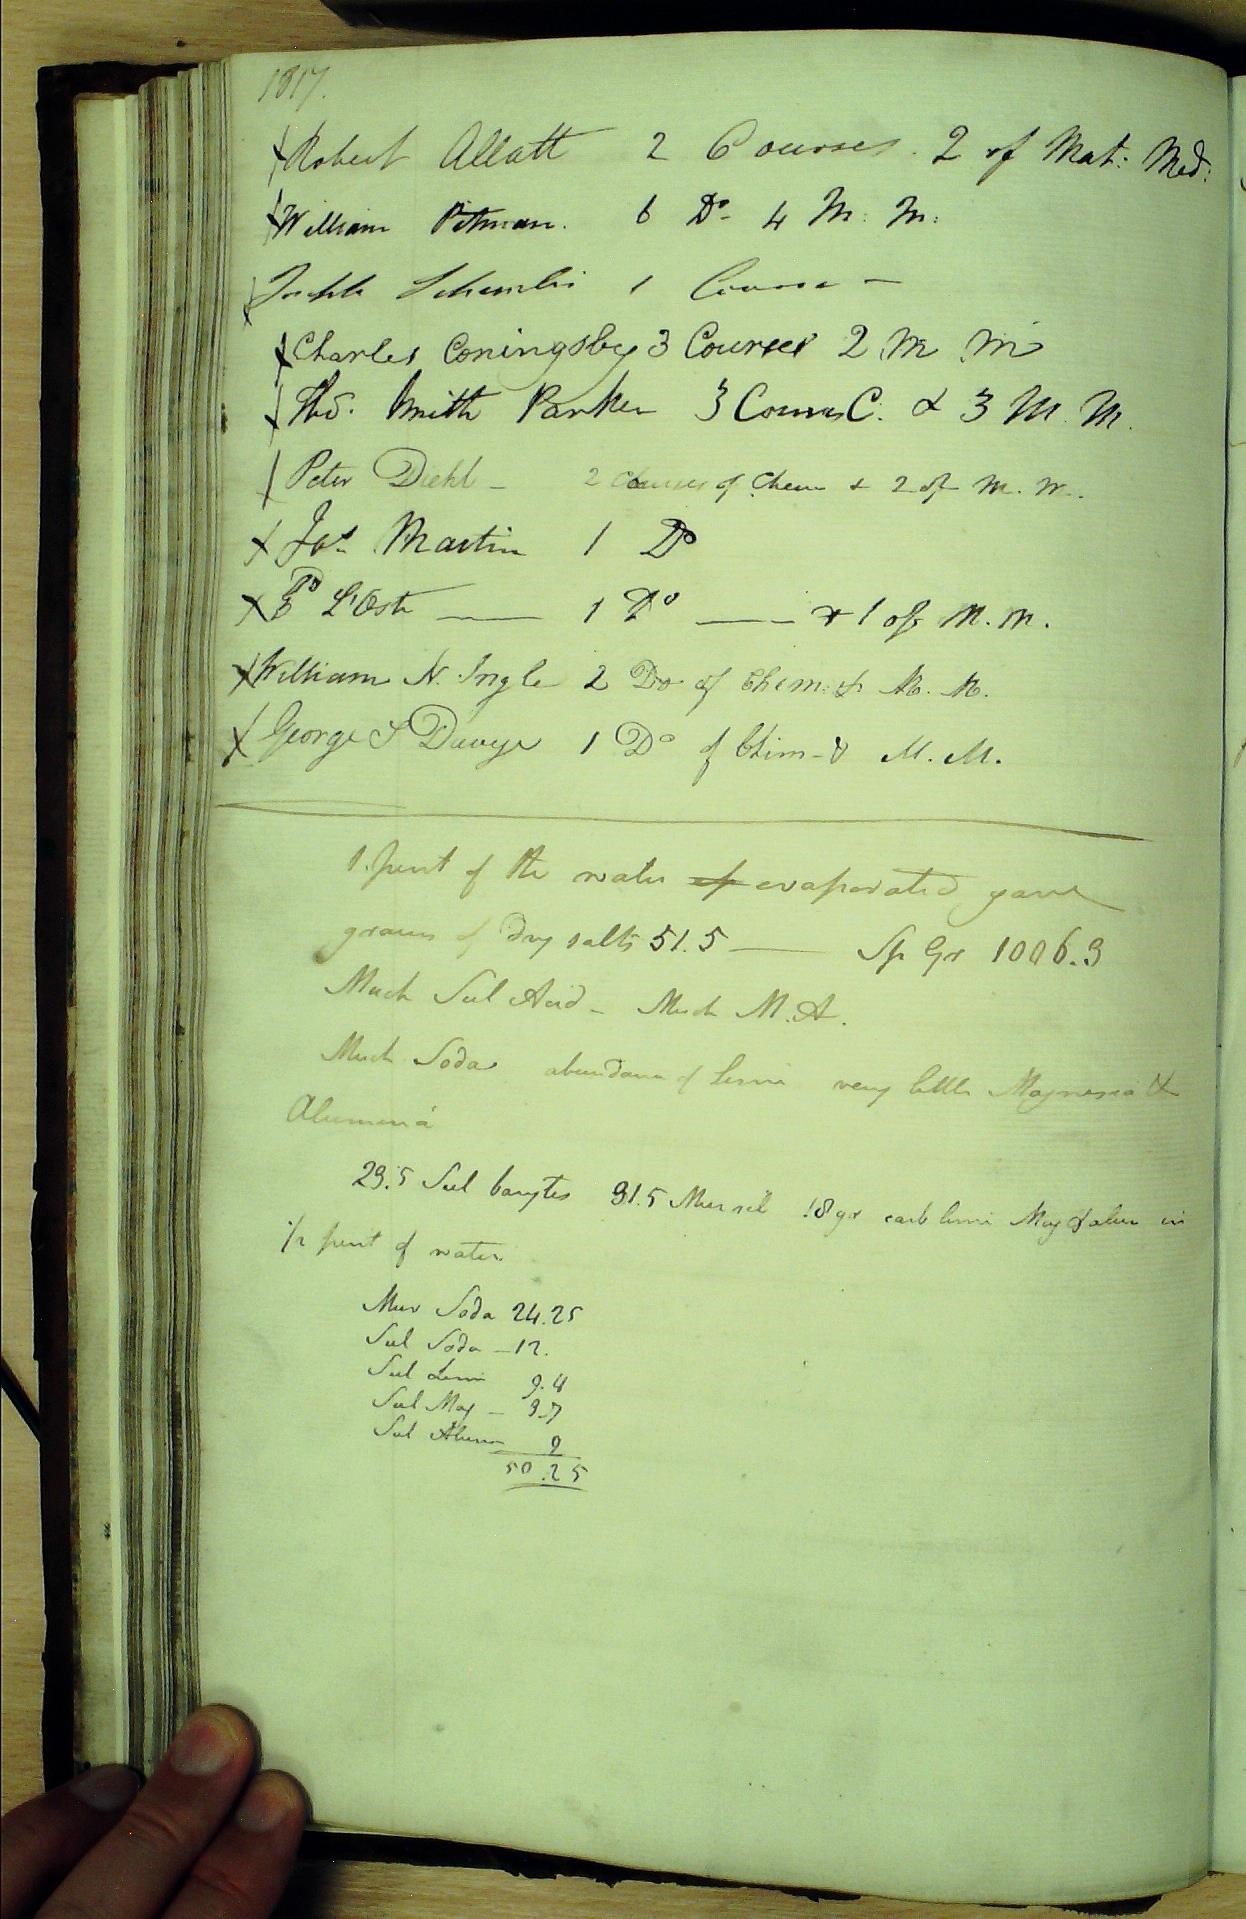 1817.
Robert Allatt 2 Courses. 2 of Mat: Med:
William Pitman. 6 Do- 4 M: M:
1 Course -
Charles Coningsby 3 Courses 2 M M
Thos. Smith Parker 3 Courses C. & 3 M. M.
Peter Diehl - 2 Courses of Chem & 2 of M. M.
Jas. Martin 1 Do
L'Oste 1 Do & 1 of M. M.
William N. Ingle 2 Do. of Chem: & M. M.
George S Davye 1 Do of Chim- & M. M.
1. pint of the water of evaporated gave
grains of dry salts 51.5 Sp Gr 1006.3
Much Sul Acid - Much M. A.
Much Soda abundance of lime very little Magnesia &
Alumina
29.5 Sul barytes 91.5 Mur sil 18 gr carb lime Mag & alum in
1/2 pint of water
Mur Soda 24.25
Sul Soda - 12.
Sul Lime 9.4
Sul Mag - 3.7
Sul Alum
50.25